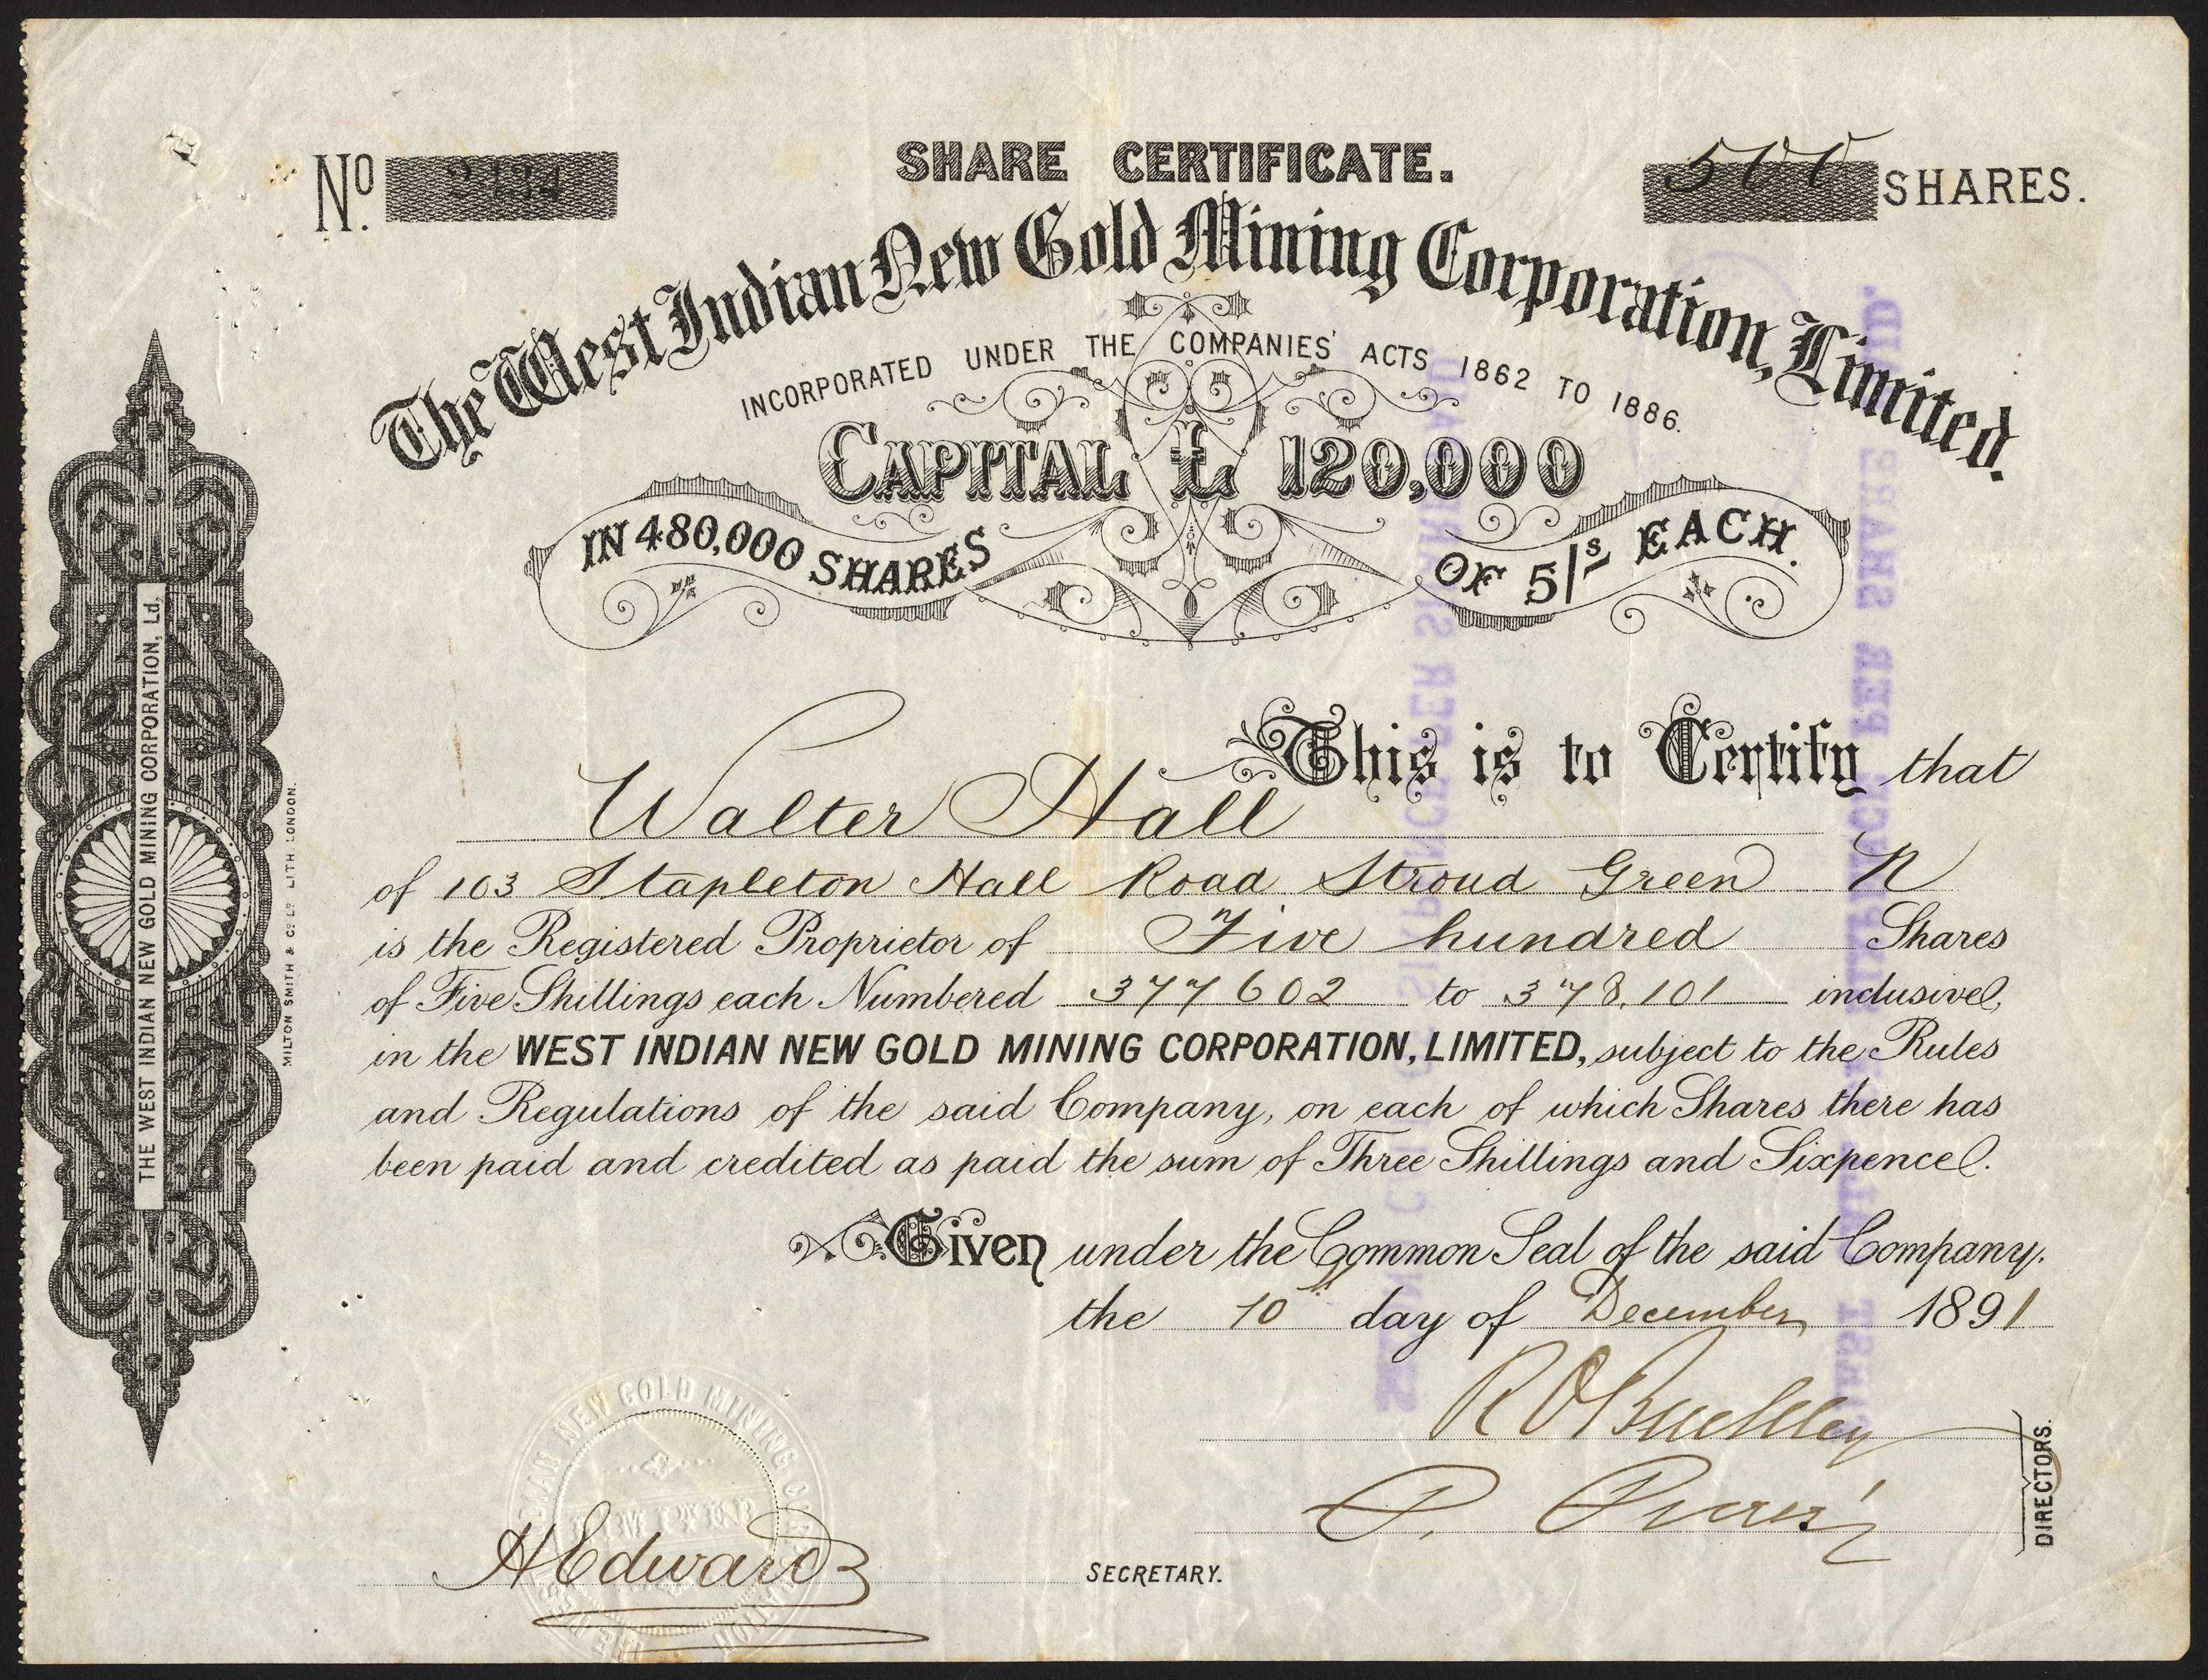 SHARE CERTIFICATE.
No. 2434
500 SHARES.
The West Indian New Gold Mining Corporation, Limited.
INCORPORATED UNDER THE COMPANIES' ACTS 1862 TO 1886.
CAPITAL £ 120,000
IN 480,000 SHARES OF 5/s EACH.
This is to Certify that
Walter Hall
of 103 Stapleton Hall Road Stroud Green N
is the Registered Proprietor of Five hundred Shares
of Five Shillings each Numbered 377602 to 378,101 inclusive,
in the WEST INDIAN NEW GOLD MINING CORPORATION, LIMITED, subject to the Rules
and Regulations of the said Company, on each of which Shares there has
been paid and credited as paid the sum of Three Shillings and Sixpence.
Given under the Common Seal of the said Company.
the 10th day of December 1891
R O Buckley
P.
DIRECTORS.
H Edwards
SECRETARY.
THE WEST INDIAN NEW GOLD MINING CORPORATION, Ld.
MILTON SMITH & Co Ld LITH LONDON.
INDIAN NEW GOLD MINING
LIMITED
SIXPENCE PER SHARE PAID.